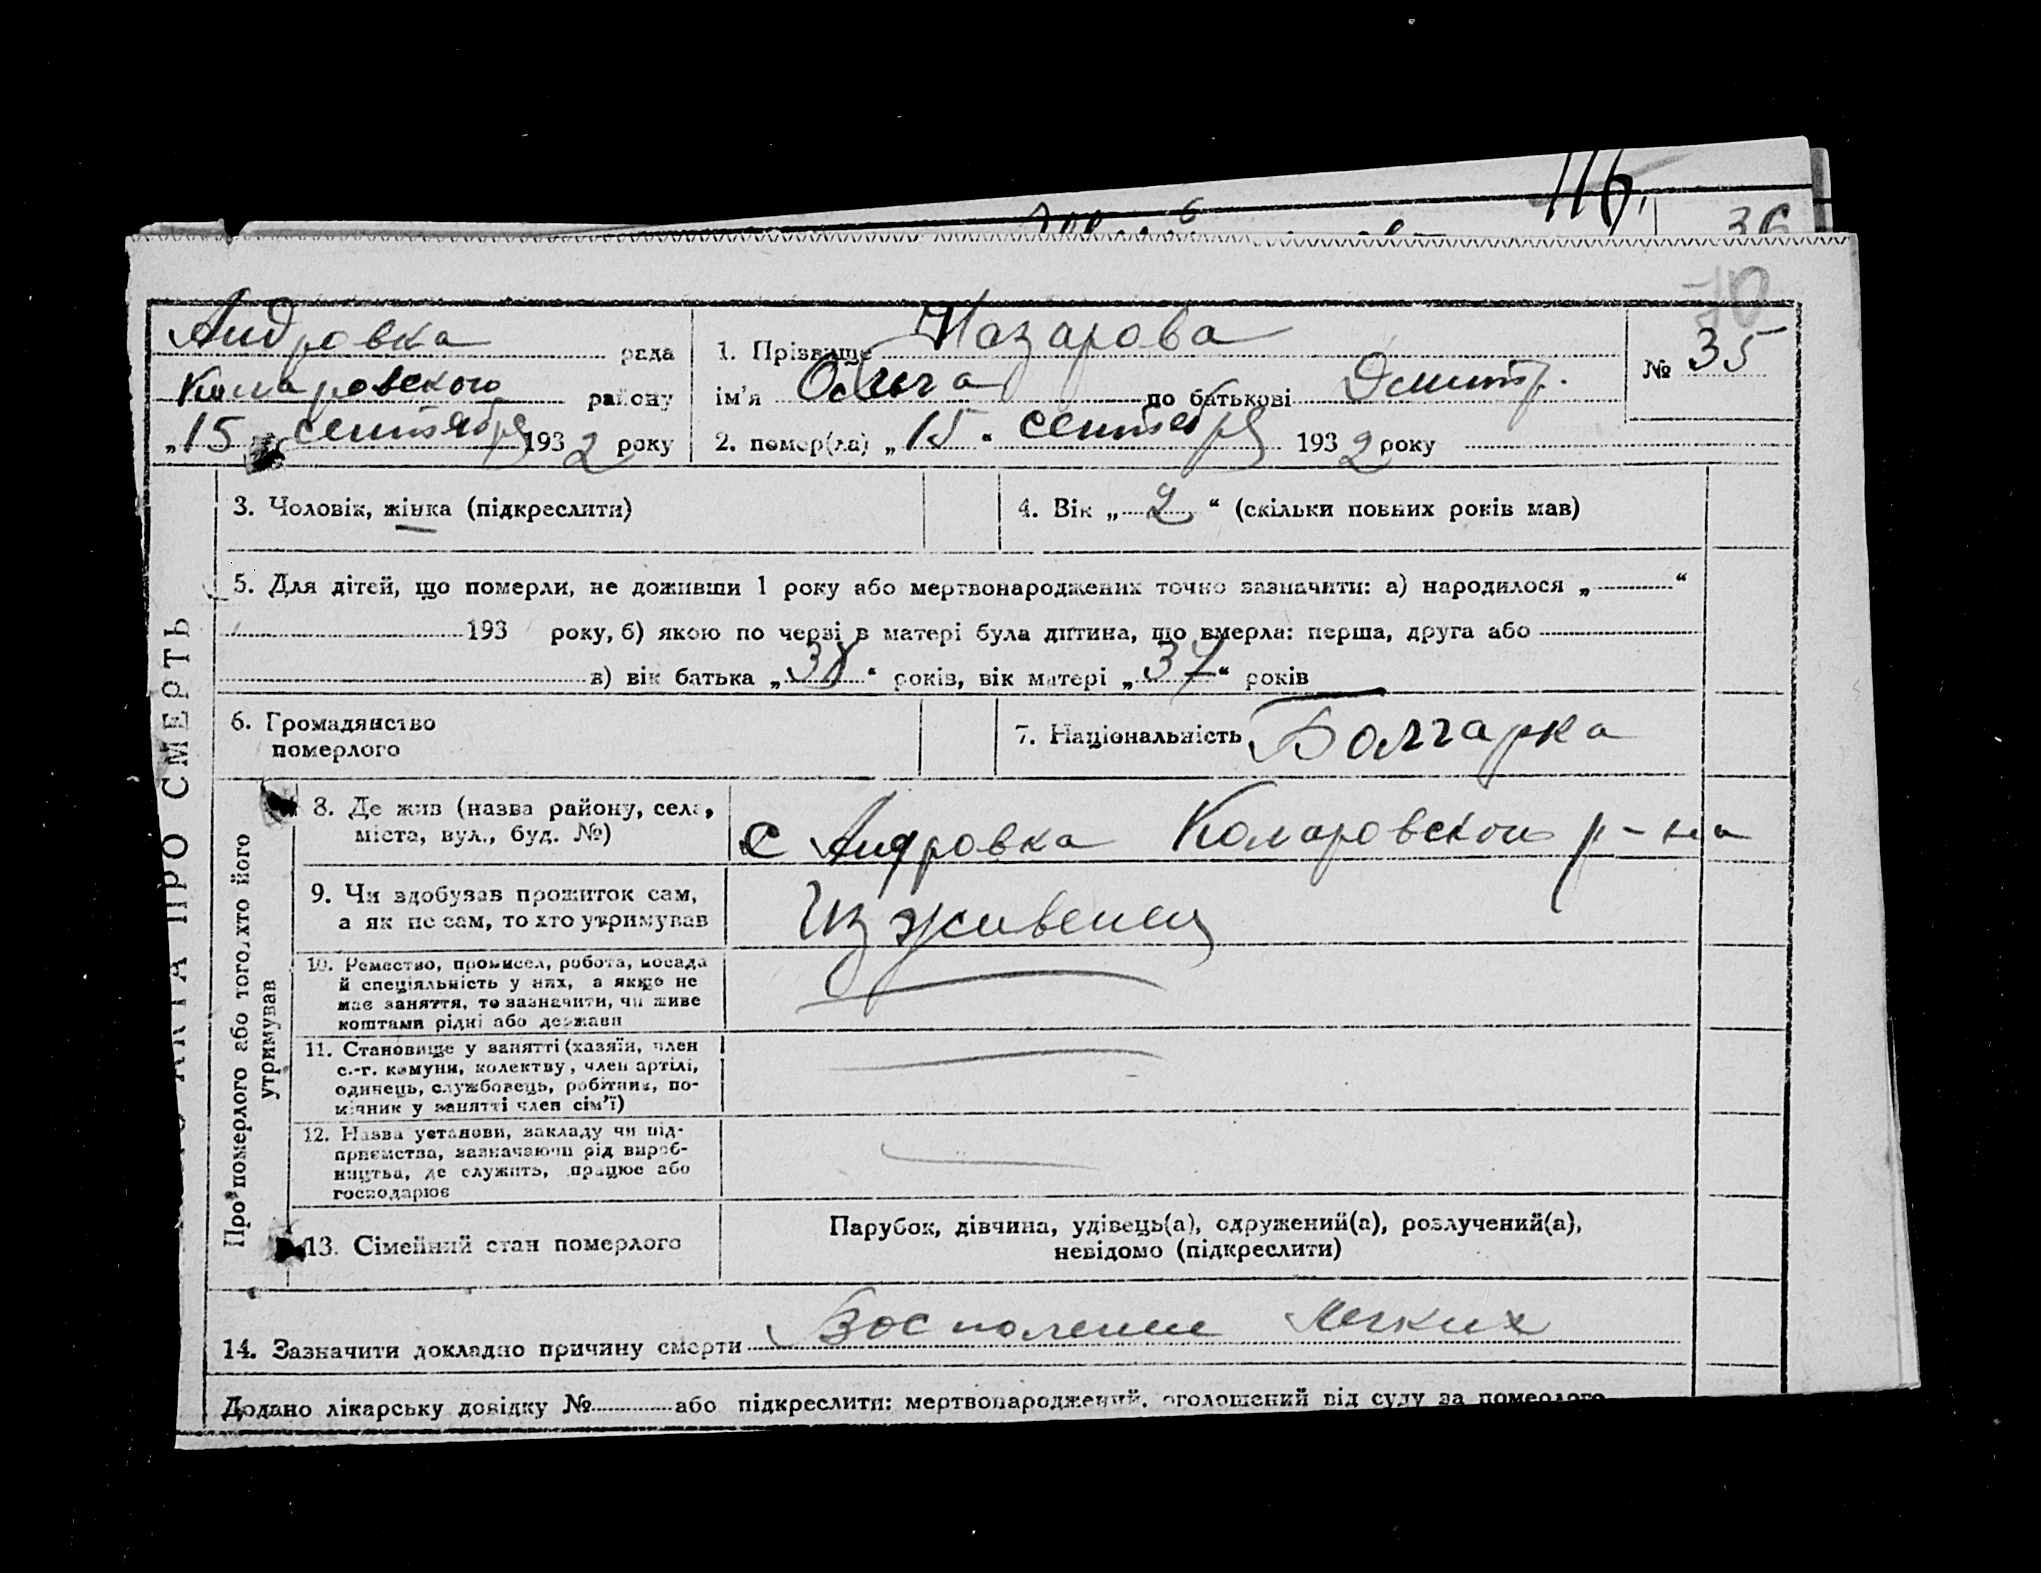 116.
36
70
Андровка рада
Комаровского району
„15 сентября 1932 року
1. Прізвище Назарова
ім'я Ольга по батькові Дмитр.
№ 35
2. помер(ла) „15" сентебря 1932 року
3. Чоловік, жінка (підкреслити)
4. Вік „2" (скільки повних років мав)
5. Для дітей, що померли, не доживши 1 року або мертвонароджених точно зазначити: а) народилося „ "
193 року, б) якою по черзі в матері була дитина, що вмерла: перша, друга або
в) вік батька „38" років, вік матері „37" років
6. Громадянство
померлого
7. Національність Болгарка
АКТА ПРО СМЕРТЬ
Про померлого або того, хто його
утримував
8. Де жив (назва району, села,
міста, вул., буд. №)
с Андровка Комаровского р-на
9. Чи здобував прожиток сам,
а як не сам, то хто утримував
Изживенец
10. Ремество, промисел, робота, посада
й спеціяльність у них, а якщо не
має заняття, то зазначити, чи живе
коштами рідні або держави
11. Становище у занятті (хазяїн, член
с.-г. комуни, колективу, член артілі,
одинець, службовець, робітник, по-
мічник у занятті член сім'ї)
12. Назва установи, закладу чи під-
приємства, зазначаючи рід вироб-
ництва, де служить, працює або
господарює
13. Сімейний стан померлого
Парубок, дівчина, удівець(а), одружений(а), розлучений(а),
невідомо (підкреслити)
14. Зазначити докладно причину смерти Восполение легких
Додано лікарську довідку № або підкреслити: мертвонароджений, оголошений від суду за померлого